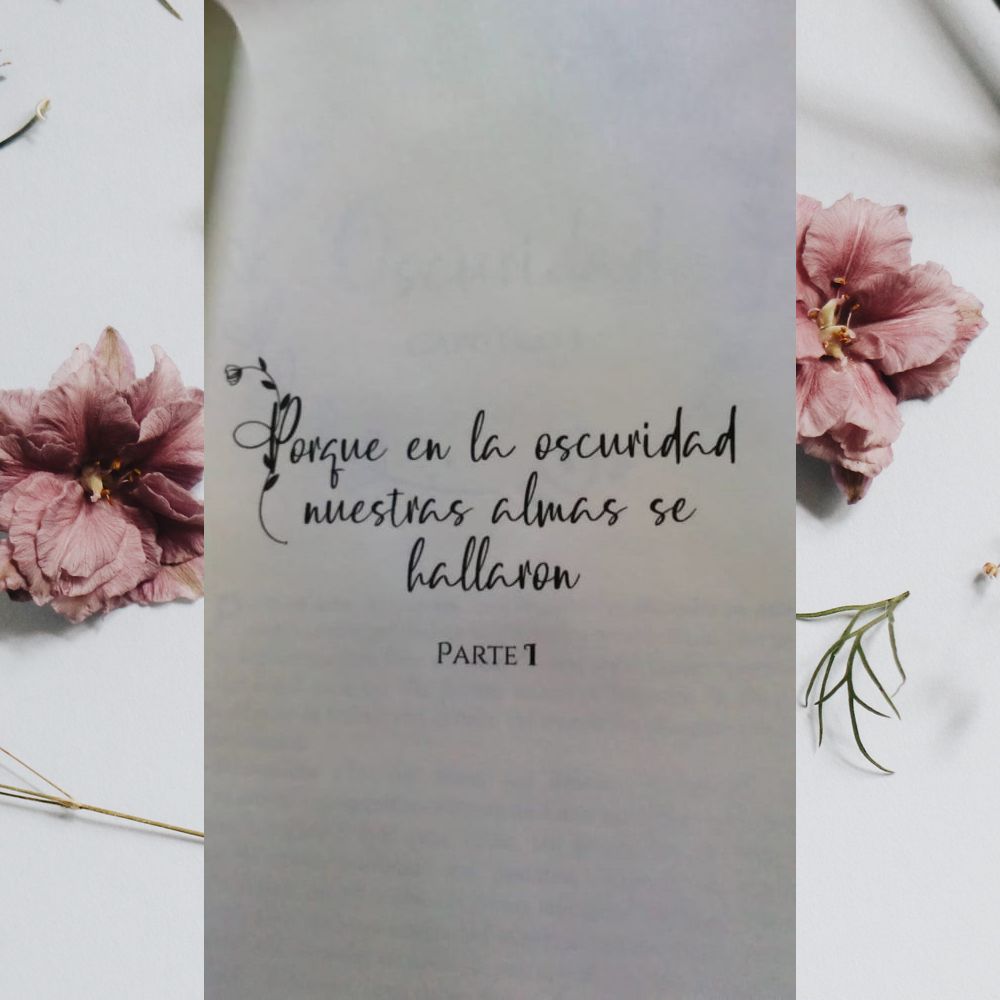 Porque en la oscuridad
nuestras almas se
hallaron
PARTE 1